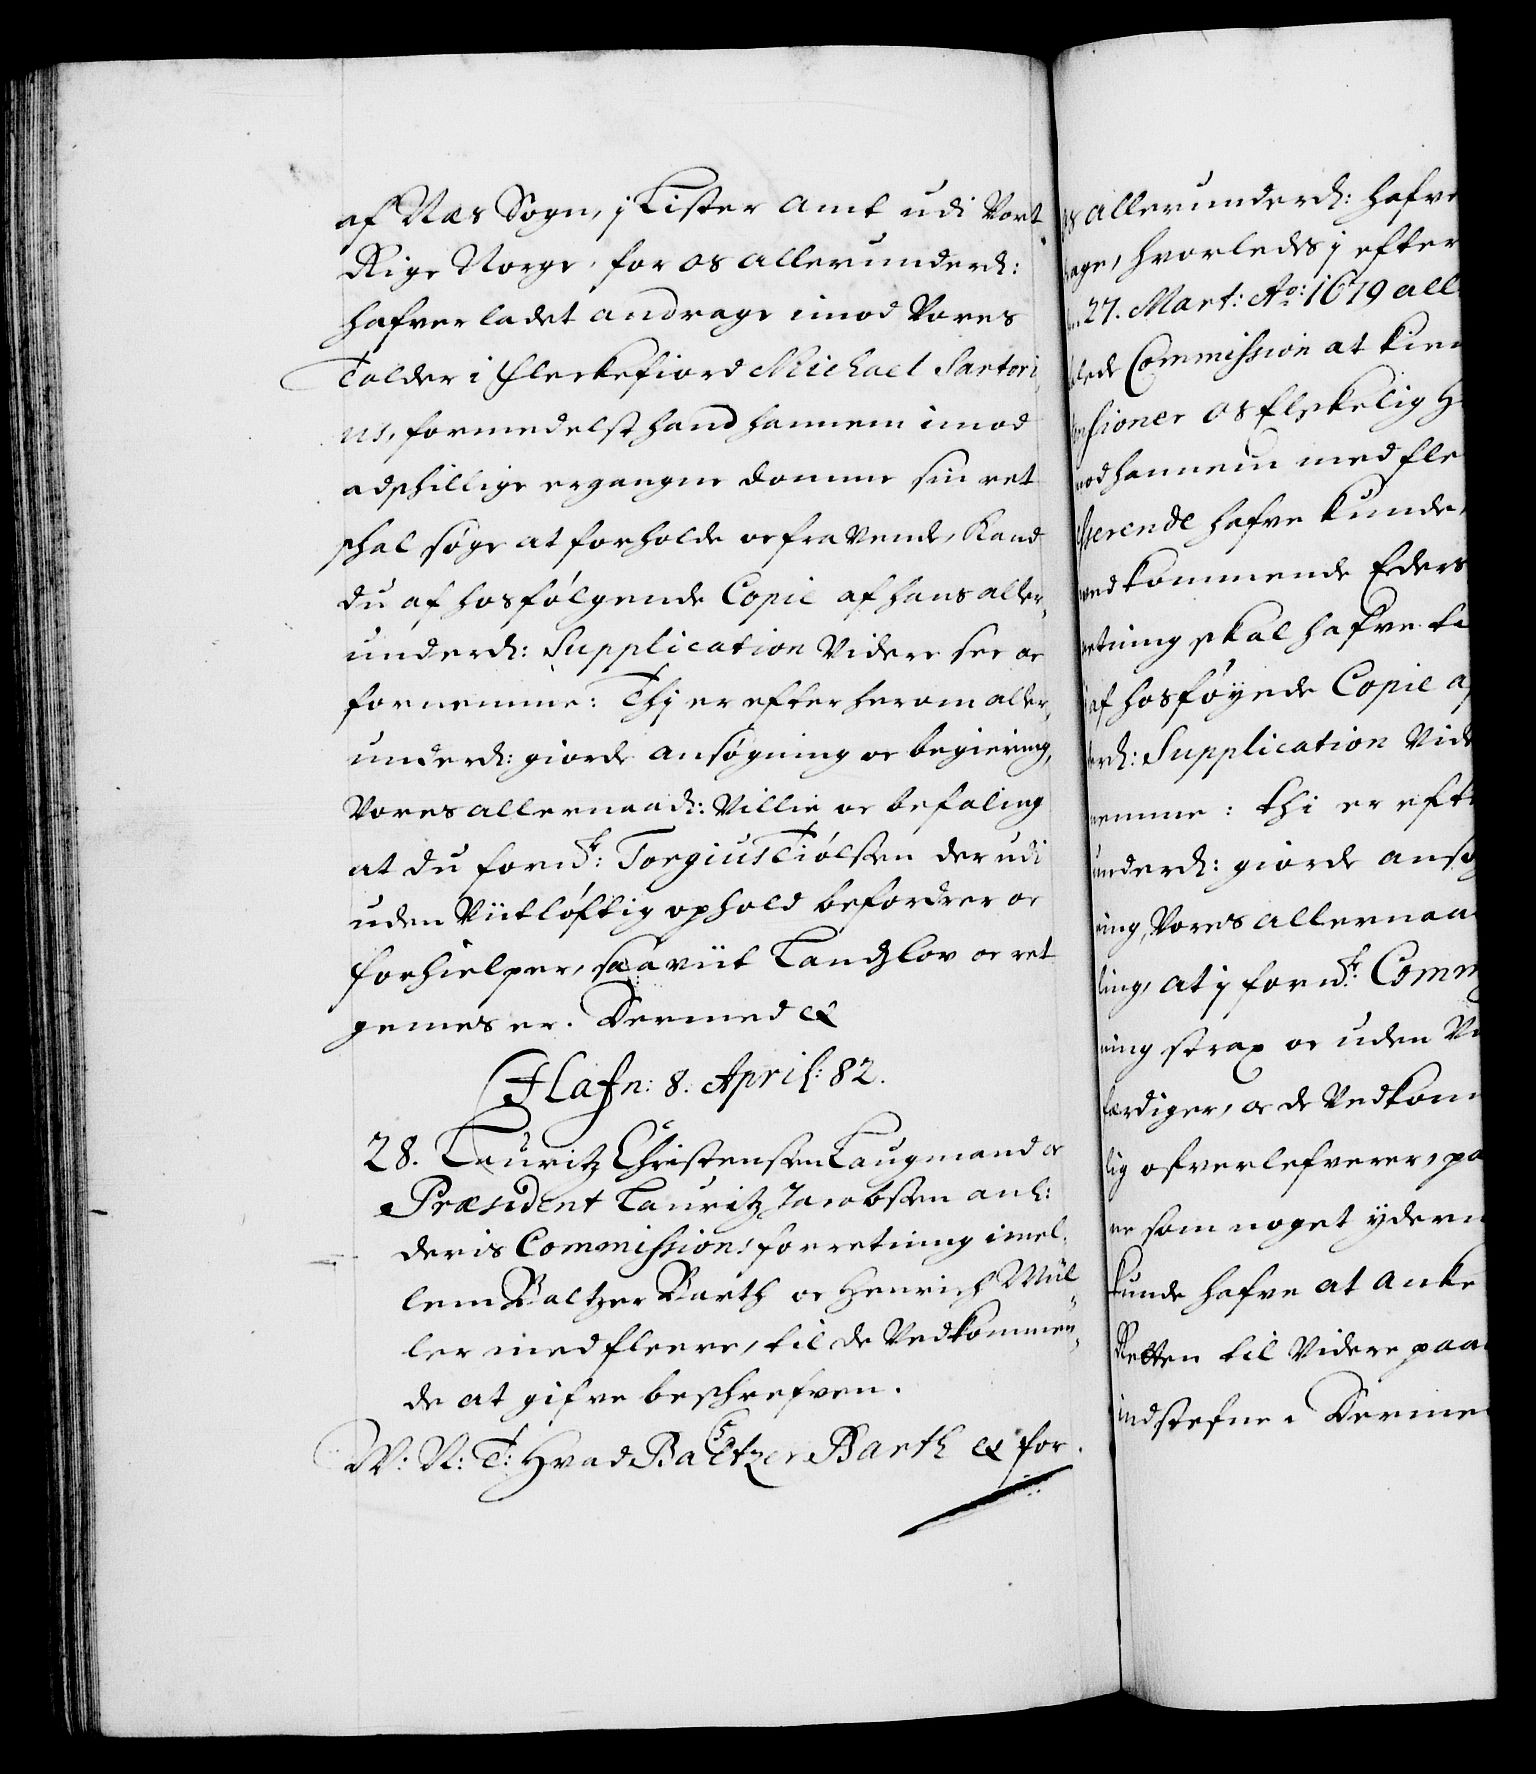 af Næs Sogn, j Lister Amt udi Vort
Rige Norge, for os allerunderd:
hafver ladet andrage imod Vores
Tolder i Fleckefiord Michael Sartori
us, formedelst hand hannem imod
adschillige ergangne Domme sin ret
schal søge at forholde oc fravende, Kand
du af hosfølgende Copie af hans aller,
underd: Supplication Videre see oc
fornemme: Thj er efter herom aller,
underd: giorde ansøgning oc begiering,
Vores allernaad: Villie oc befaling
at du fornd:
 Torgius Tiølsen der udi
uden Viitløftig ophold befordrer oc
forhielper, saa viit Landzlov oc ret
gemes er. Dermed &
Hafn: 8. April: 82.
28. Lauritz Christensen Laugmand oc
Præsident Lauritz Jacobsen anl:
deris Commissions forretning imel,
lem Baltzer Barth oc Henrich Mül,
ler med fleere, til de Vedkommen,
de at gifve beschrefven.
W: N: T: Hvad Baltzer Barth & for
os allerunderd: hafve
rage, hvorledes j efter
27. Mart: Ao: 1679 all
Commission at kien
os Elskelig H
od hannem med fle
hafve kunde,
ved kommende Eders
retning skal hafve
af hosføyede Copie af
erd: Supplication Vide
nemme: thi er efte
underd: giorde ansø
ring, Vores allernaa
ling, at j fornd: Comm
ning strax oc uden Vi
færdiger, oc de Vedkom
lig ofverlefverer, paa
re som noget yderm
kunde hafve at anke
Retten til Videre paa
indstefne. Derme